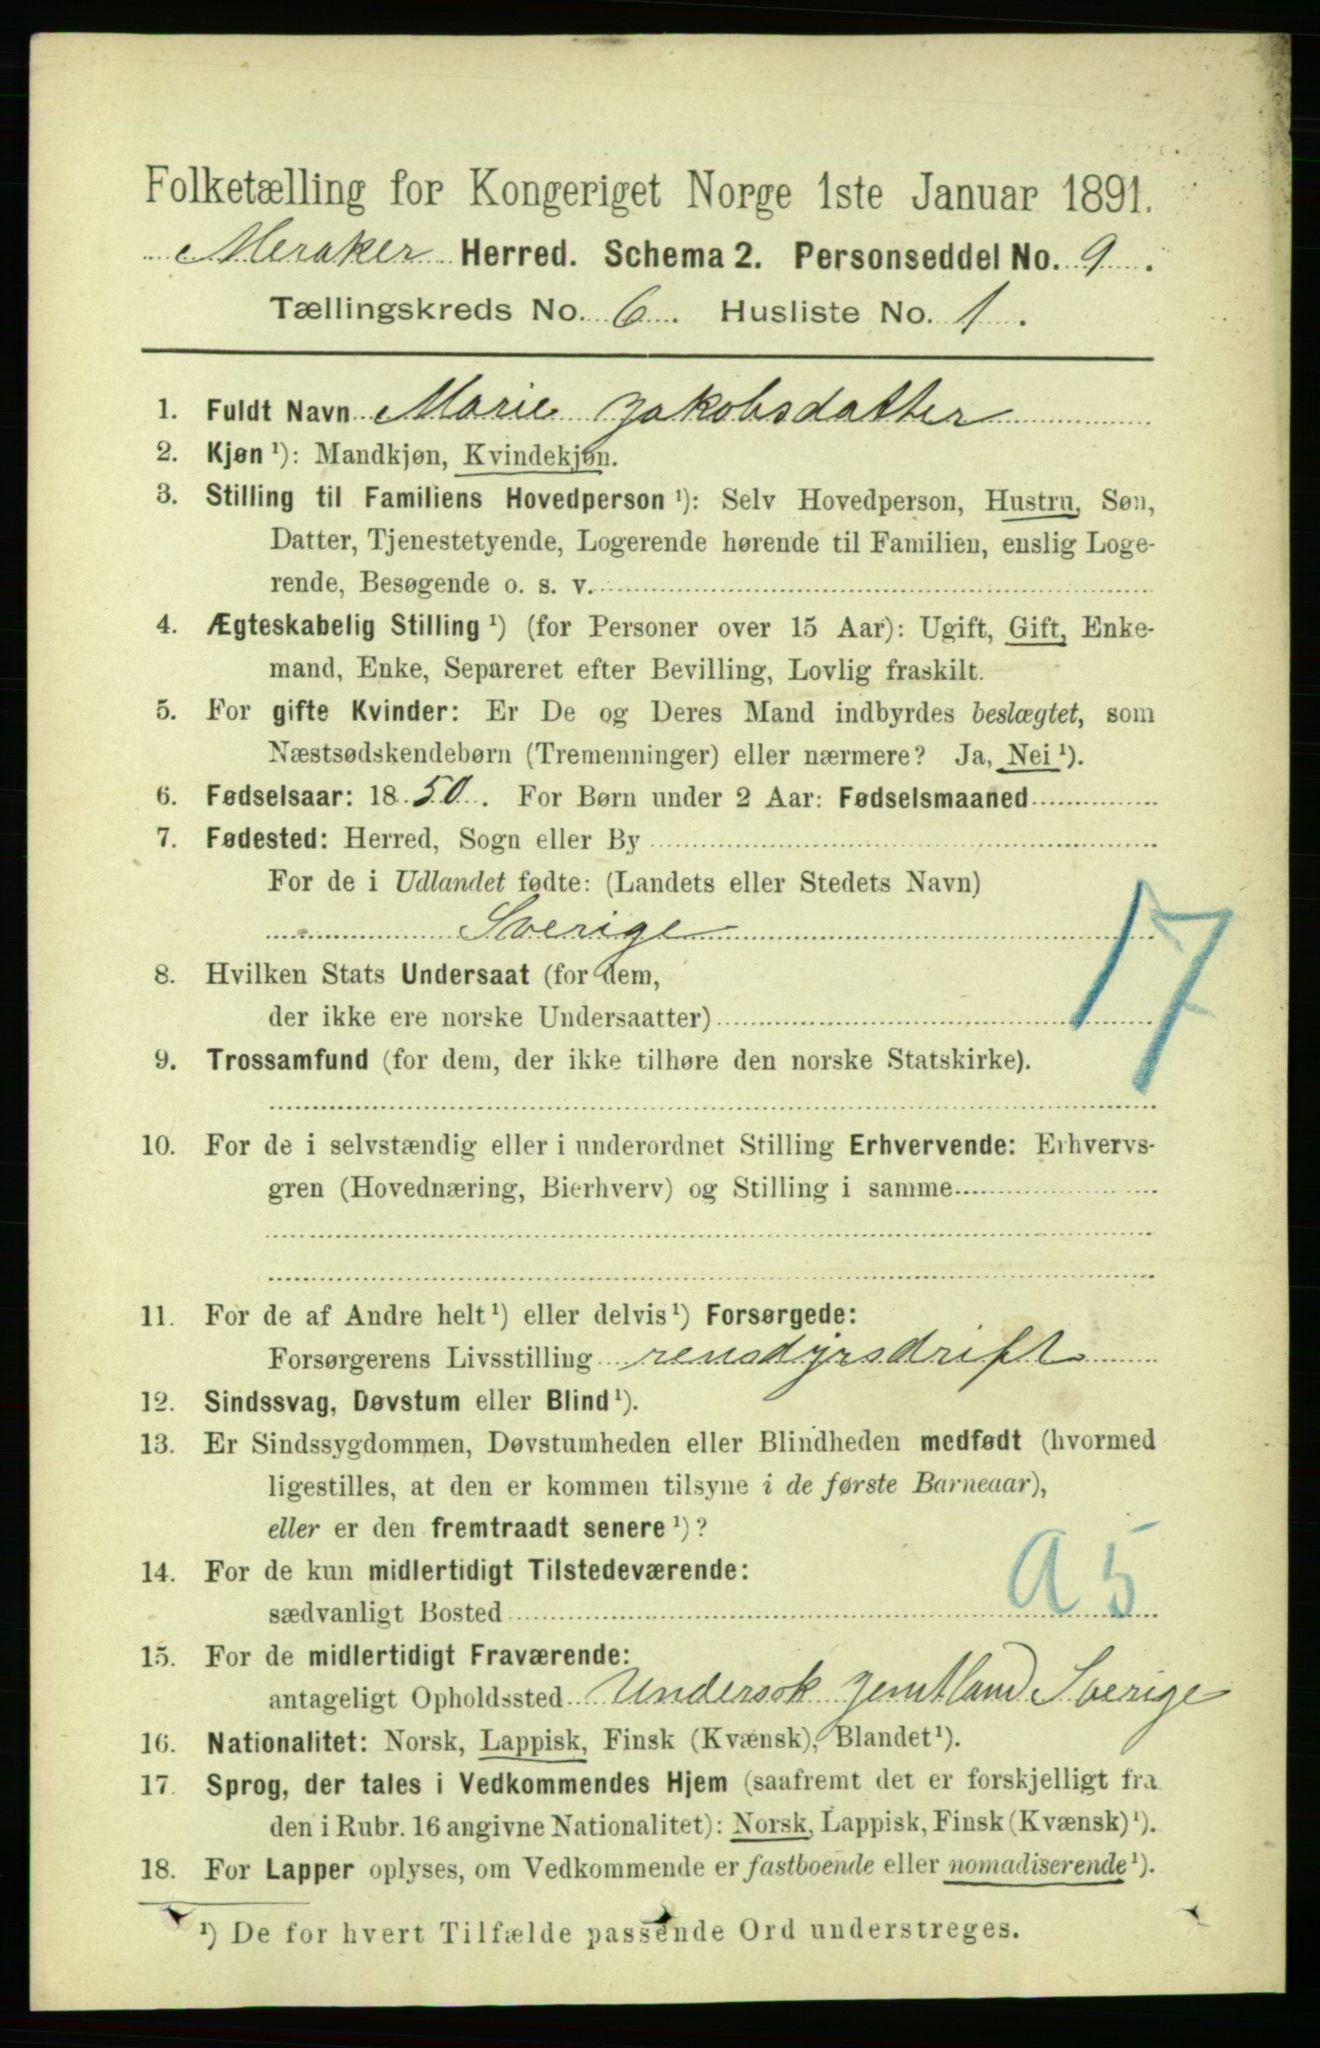 Folketælling for Kongeriget Norge 1ste Januar 1891.
Meraker Herred. Schema 2. Personseddel No. 9.
Tællingskreds No. 6. Husliste No. 1.
1. Fuldt Navn Marie Jakobsdatter
2. Kjøn ¹): Mandkjøn, Kvindekjøn.
3. Stilling til Familiens Hovedperson ¹): Selv Hovedperson, Hustru, Søn,
Datter, Tjenestetyende, Logerende hørende til Familien, enslig Loge-
rende, Besøgende o. s. v.
4. Ægteskabelig Stilling ¹) (for Personer over 15 Aar): Ugift, Gift, Enke-
mand, Enke, Separeret efter Bevilling, Lovlig fraskilt.
5. For gifte Kvinder: Er De og Deres Mand indbyrdes beslægtet, som
Næstsødskendebørn (Tremenninger) eller nærmere? Ja, Nei ¹).
6. Fødselsaar: 1850. For Børn under 2 Aar: Fødselsmaaned
7. Fødested: Herred, Sogn eller By
For de i Udlandet fødte: (Landets eller Stedets Navn)
Sverige
17
8. Hvilken Stats Undersaat (for dem,
der ikke ere norske Undersaatter)
9. Trossamfund (for dem, der ikke tilhøre den norske Statskirke).
10. For de i selvstændig eller i underordnet Stilling Erhvervende: Erhvervs-
gren (Hovednæring, Bierhverv) og Stilling i samme
11. For de af Andre helt ¹) eller delvis ¹) Forsørgede:
Forsørgerens Livsstilling rensdyrsdrift
12. Sindssvag, Døvstum eller Blind ¹).
13. Er Sindssygdommen, Døvstumheden eller Blindheden medfødt (hvormed
ligestilles, at den er kommen tilsyne i de første Barneaar),
eller er den fremtraadt senere ¹)?
14. For de kun midlertidigt Tilstedeværende:
sædvanligt Bosted
a 5
15. For de midlertidigt Fraværende:
antageligt Opholdssted Undersok Jemtland Sverige
16. Nationalitet: Norsk, Lappisk, Finsk (Kvænsk), Blandet ¹).
17. Sprog, der tales i Vedkommendes Hjem (saafremt det er forskjelligt fra
den i Rubr. 16 angivne Nationalitet): Norsk, Lappisk, Finsk (Kvænsk) ¹).
18. For Lapper oplyses, om Vedkommende er fastboende eller nomadiserende ¹).
¹) De for hvert Tilfælde passende Ord understreges.